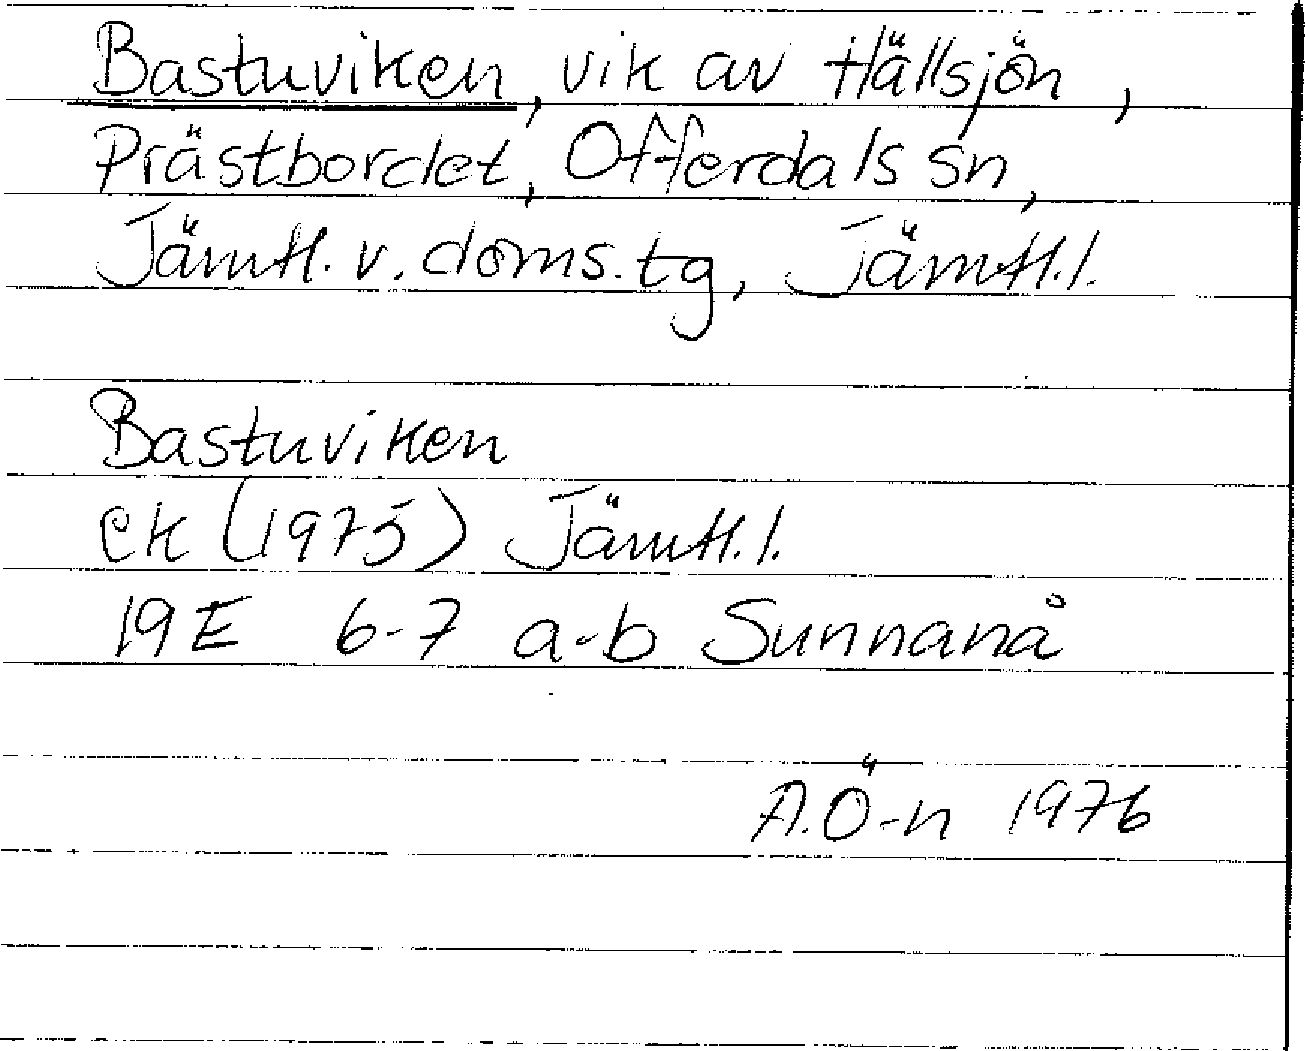 Bastuviken, vik av Hällsjön,
Prästbordet, Offerdals sn,
Jämtl. v. doms. tg, Jämtl. l.
Bastuviken
ek (1975) Jämtl. l.
19E 6-7 a-b Sunnanå
A.Ö-n 1976